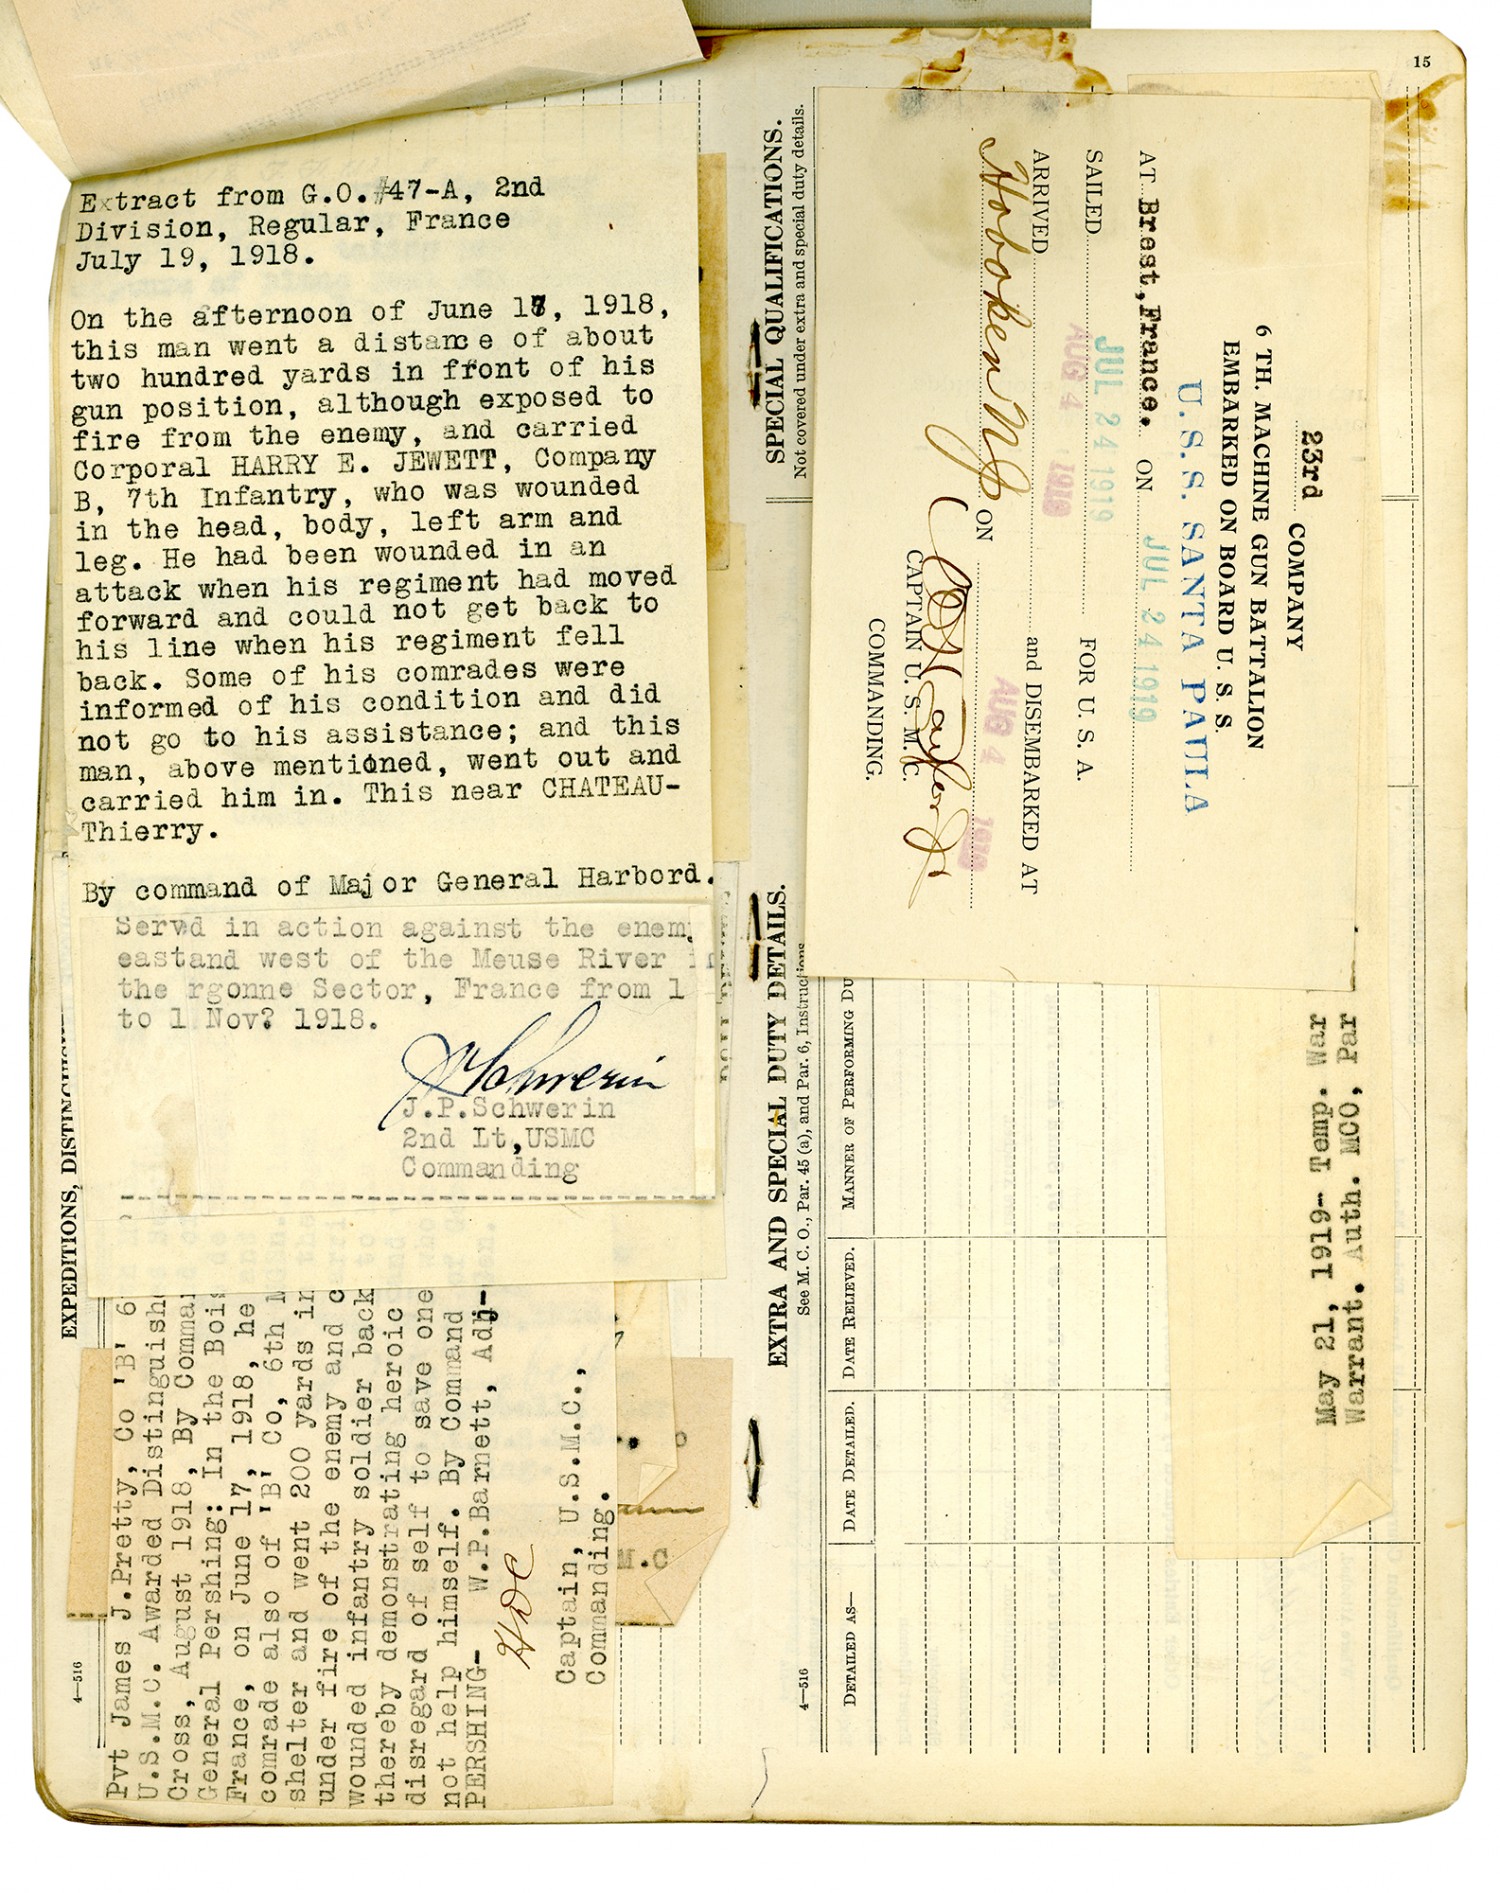 15
Extract from G.O.#47-A, 2nd
Division, Regular, France
July 19, 1918.
On the afternoon of June 17, 1918,
this man went a distance of about
two hundred yards in front of his
gun position, although exposed to
fire from the enemy, and carried
Corporal HARRY E. JEWETT, Company
B, 7th Infantry, who was wounded
in the head, body, left arm and
leg. He had been wounded in an
attack when his regiment had moved
forward and could not get back to
his line when his regiment fell
back. Some of his comrades were
informed of his condition and did
not go to his assistance; and this
man, above mentioned, went out and
carried him in. This near CHATEAU-
Thierry.
By command of Major General Harbord.
Served in action against the enemy
eastand west of the Meuse River in
the rgonne Sector, France from 1
to 1 Nov? 1918.
J.P.Schwerin
2nd Lt,USMC
Commanding
EXPEDITIONS,
4—516
Pvt James J.Pretty, Co 'B' 6
U.S.M.C. Awarded Distinguish
Cross, August 1918, By Comma
General Pershing: In the Bois
France, on June 17, 1918, he
comrade also of 'B' Co, 6th
shelter and went 200 yards in
under fire of the enemy and c
wounded infantry soldier back
thereby demonstrating heroic
disregard of self to save one
not help himself. By Command
PERSHING- W.P.Barnett, Adj-
HDC
Captain, U.S.M.C.,
Commanding.
M.C
SPECIAL QUALIFICATIONS.
Not covered under extra and special duty details.
23rd COMPANY
6 TH. MACHINE GUN BATTALION
EMBARKED ON BOARD U. S. S.
U.S.S. SANTA PAULA
AT Brest,France. ON JUL 24 1919
SAILED JUL 24 1919 FOR U. S. A.
ARRIVED AUG 4 1919 and DISEMBARKED AT
Hoboken NJ ON AUG 4 1919
CAPTAIN U. S. M. C.
COMMANDING.
EXTRA AND SPECIAL DUTY DETAILS.
See M. C. O., Par. 45 (a), and Par. 6, Instructions
4—516
DETAILED AS—
DATE DETAILED.
DATE RELIEVED.
MANNER OF PERFORMING DU
May 21, 1919- Temp. War
Warrant. Auth. MCO, Par